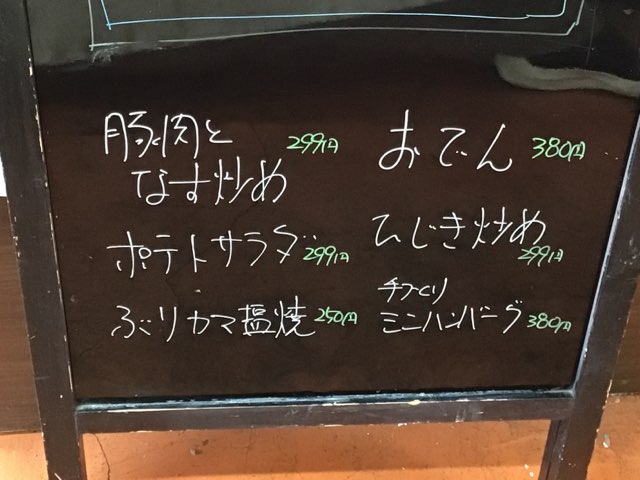 豚肉と 299円
なす炒め
ポテトサラダ 299円
ぶりカマ塩焼 250円
おでん 380円
ひじき炒め
299円
手づくり
ミニハンバーグ 380円